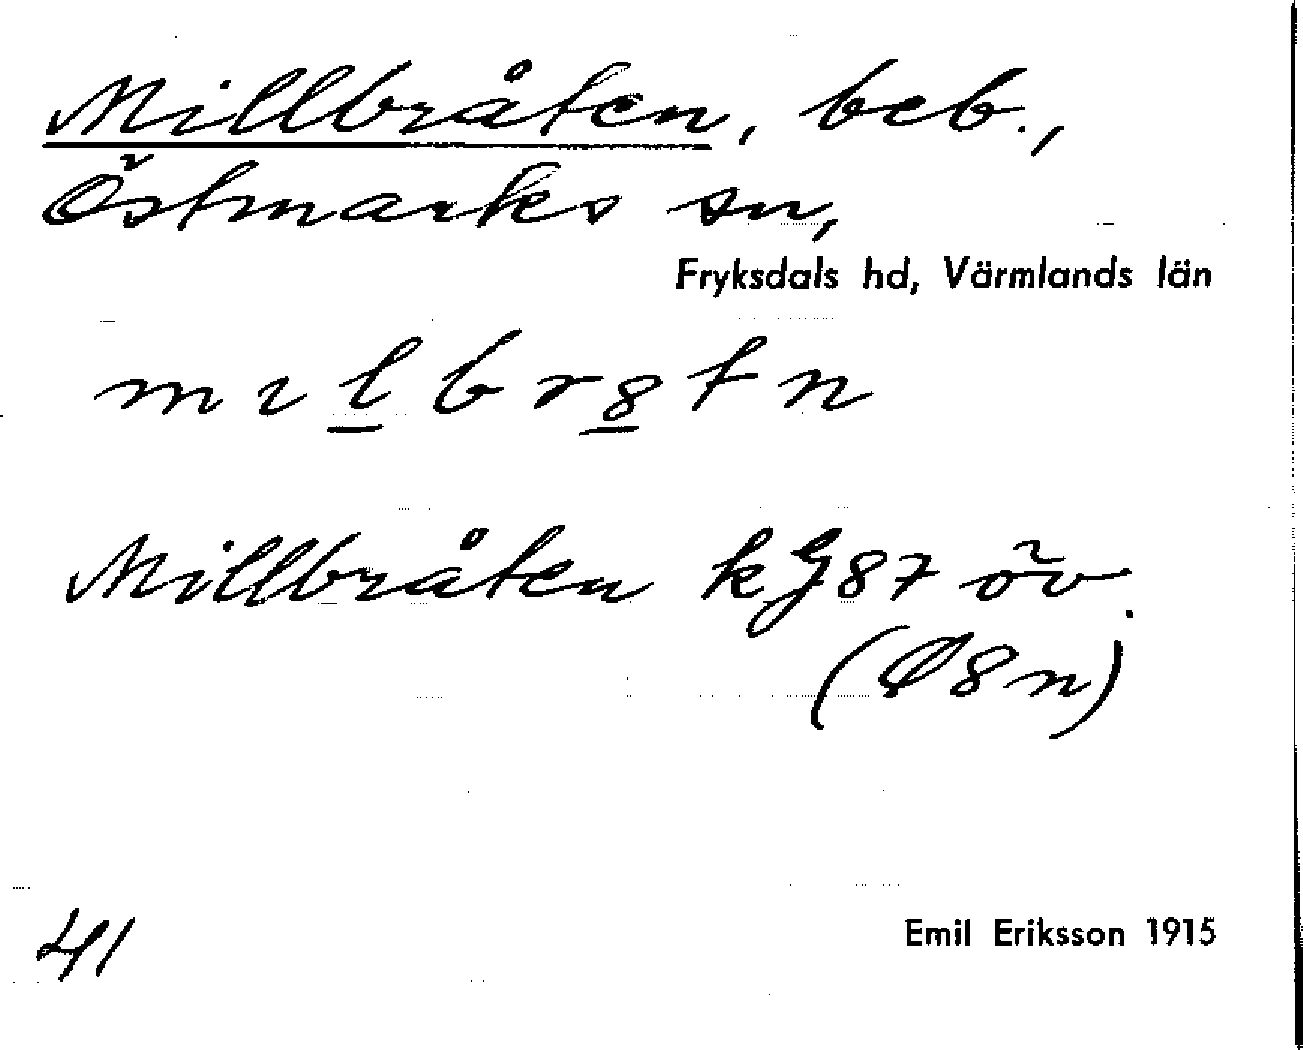 Millbråten, beb.,
Östmarks sn,
Fryksdals hd, Värmlands län
m ı l̲ b r 8̲ t n
Millbråten kG87 öv.
(Ø8n)
41
Emil Eriksson 1915